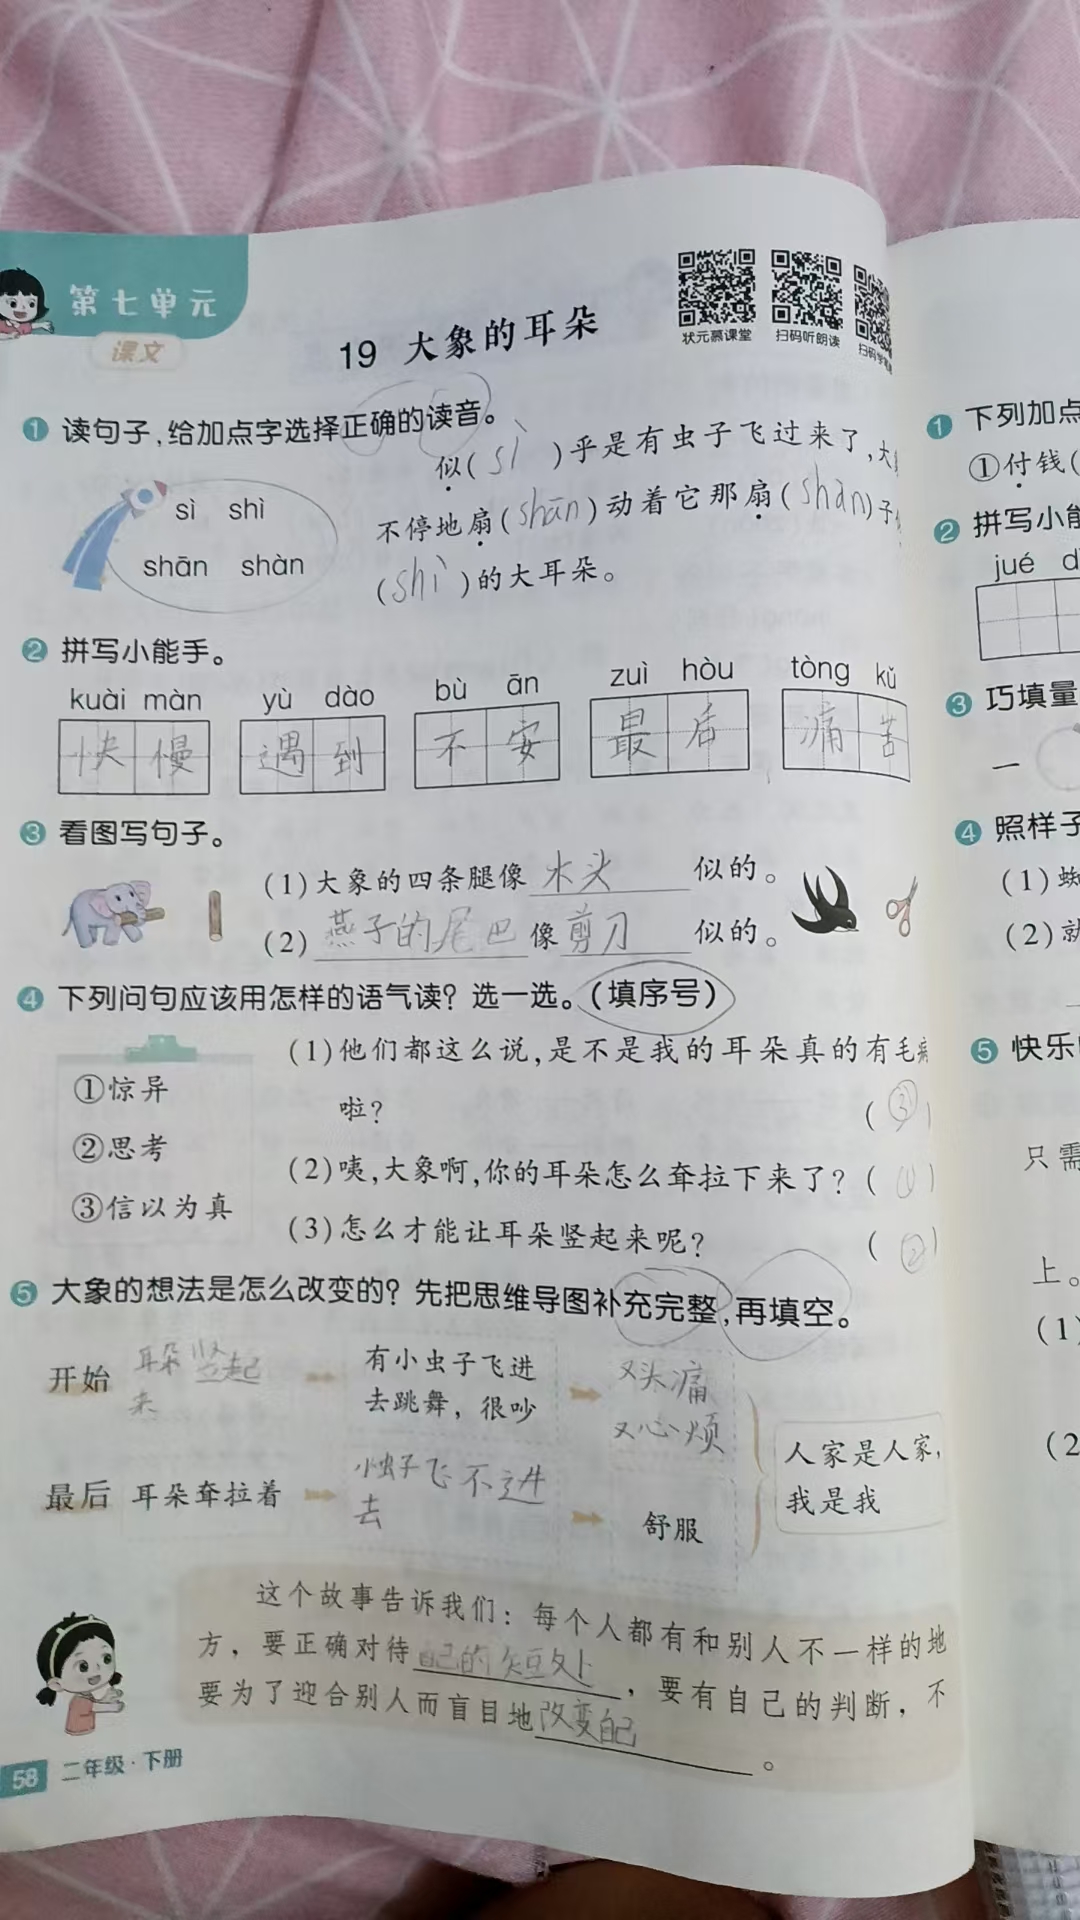 第七单元
课文
19 大象的耳朵
状元慕课堂 扫码听朗读
1 读句子,给加点字选择正确的读音。
sì shì
shān shàn
似(sì)乎是有虫子飞过来了,大
不停地扇(shān)动着它那扇(shàn)子
(shì)的大耳朵。
2 拼写小能手。
kuài màn yù dào bù ān zuì hòu tòng kǔ
快慢 遇到 不安 最后 痛苦
3 看图写句子。
(1)大象的四条腿像木头似的。
(2)燕子的尾巴像剪刀似的。
4 下列问句应该用怎样的语气读?选一选。(填序号)
①惊异
②思考
③信以为真
(1)他们都这么说,是不是我的耳朵真的有毛病
啦? (③)
(2)咦,大象啊,你的耳朵怎么耷拉下来了?(①)
(3)怎么才能让耳朵竖起来呢? (②)
5 大象的想法是怎么改变的?先把思维导图补充完整,再填空。
开始 耳朵竖起来
有小虫子飞进
去跳舞,很吵
又头痛
又心烦
最后 耳朵耷拉着
小虫子飞不进
去
舒服
人家是人家,
我是我
这个故事告诉我们:每个人都有和别人不一样的地
方,要正确对待自己的短处,要有自己的判断,不
要为了迎合别人而盲目地改变自己。
58 二年级·下册
1 下列加点
①付钱(
2 拼写小能
jué
3 巧填量
一
4 照样子
(1)蜘
(2)就
5 快乐
只需
上。
(1)
(2